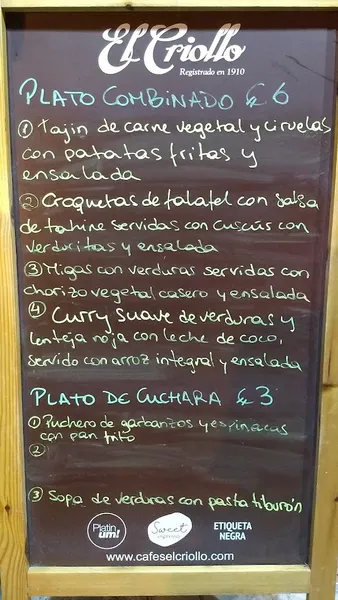 El Criollo
Registrado en 1910
PLATO COMBINADO € 6
① Tajin de carne vegetal y ciruelas
con patatas fritas y
ensalada
② Croquetas de falafel con salsa
de tahine servidas con cuscús con
verduritas y ensalada
③ Migas con verduras servidas con
chorizo vegetal casero y ensalada
④ Curry suave de verduras y
lenteja roja con leche de coco,
servido con arroz integral y ensalada
PLATO DE CUCHARA € 3
① Puchero de garbanzos y espinacas
con pan frito
②
③ Sopa de verduras con pasta tiburón
Platin um!
Sweet
ETIQUETA
NEGRA
www.cafeselcriollo.com